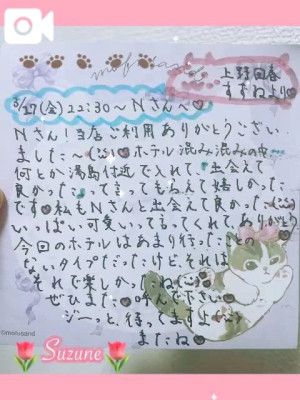 mofusand
上野回春
すずねより
3/27(金)22:30〜Nさんへ
Nさん!当店ご利用ありがとうござい
ました〜 ホテル混み混みの中
何とか湯島付近で入れて、出会えて
良かった…って言ってもらえて嬉しかった
です 私もNさんと出会えて良かった
いっぱい可愛いって言ってくれてありがとう
今回のホテルはあまり行ったことの
ないタイプだったけど、それは
それで楽しかったね
ぜひまた 呼んで下さい
ジーっと、待ってますよ〜
またね
©mofusand
Suzune